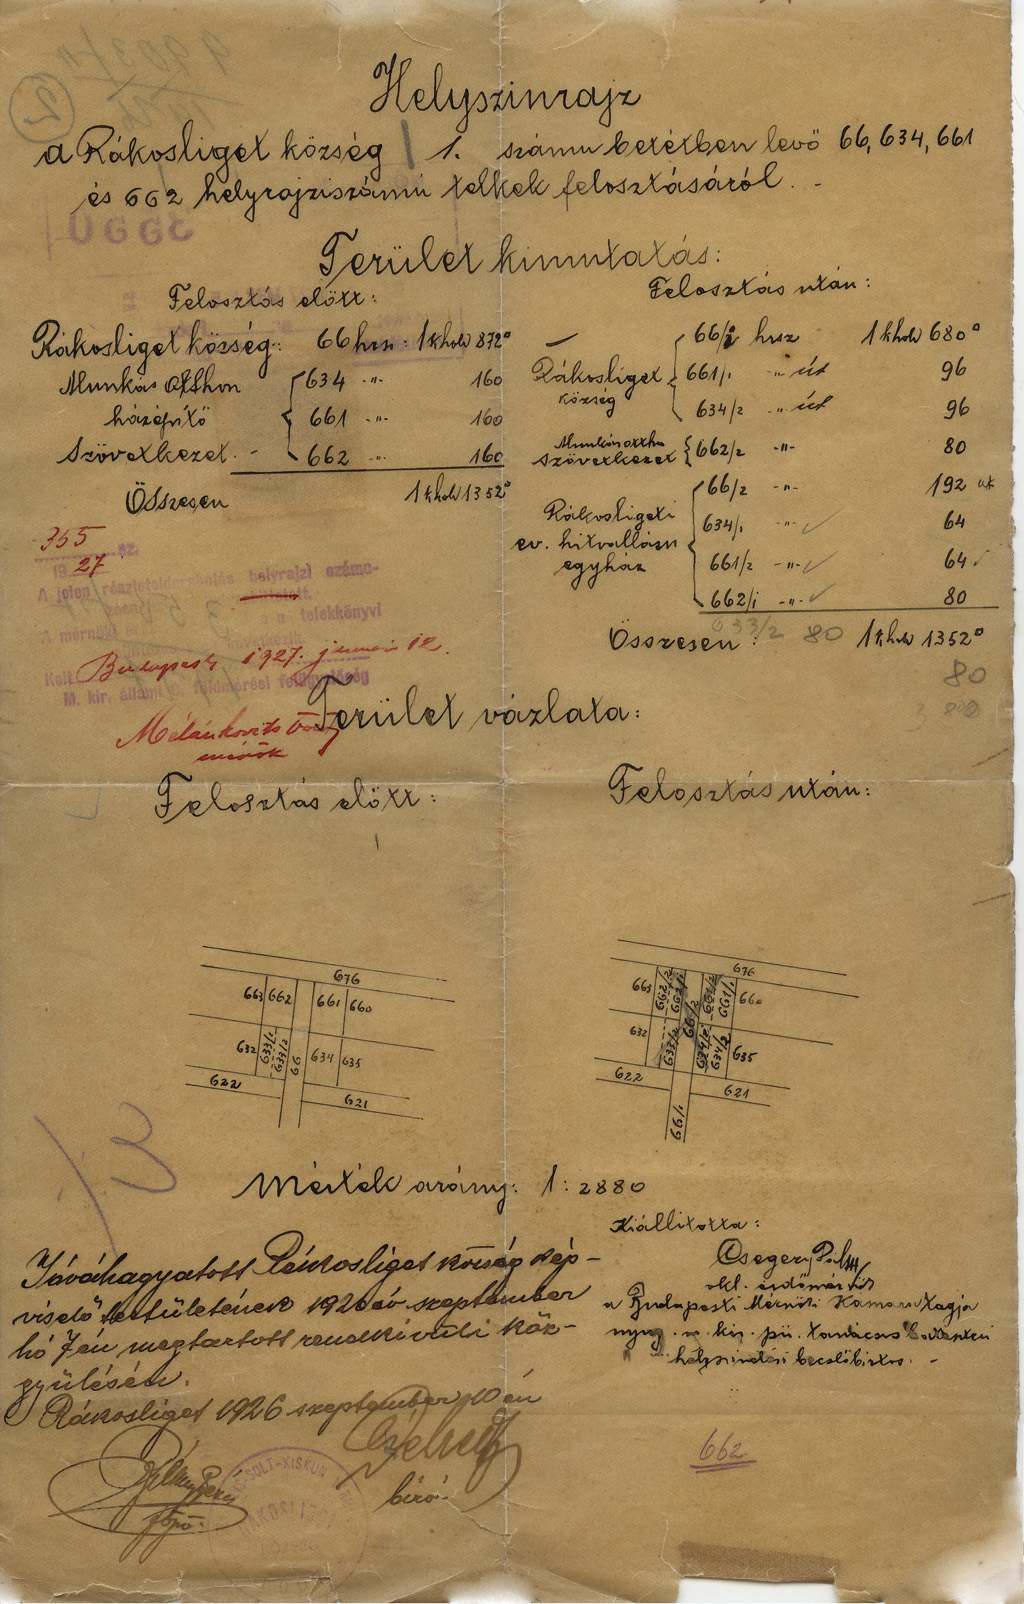 Helyszinrajz
a Rákosliget község 1. számu betétben levő 66, 634, 661
és 662 helyrajziszámu telkek felosztásáról. -
Terület kimutatás:
Felosztás előtt:
Rákosliget község: 66 hrsz: 1 khold 872°
Munkás Otthon
házépítő
Szövetkezet. -
634 -"- 160
661 -"- 160
662 -"- 160
Összesen 1 khold 1352°
Felosztás után:
66/1 hrsz 1 khold 680°
Rákosliget
község
661/1 -"- út 96
634/2 -"- út 96
Munkásotthon
Szövetkezet
662/2 -"- 80
66/2 -"- 192 út
Rákosligeti
ev. hitvallásu
egyház
634/1 -"- 64
661/2 -"- 64
662/1 -"- 80
633/2 80
Összesen: 1 khold 1352°
80
355 sz.
1927
A jelen részletfeldarabolás helyrajzi száma-
telekkönyvi
A mérnöki
Kelt Budapest 1927. január 12.
M. kir. állami földmérési felügyelőség
mérnök
Terület vázlata:
Felosztás előtt:
Felosztás után:
676
663 662 661 660
632 633/1 633/2 66 634 635
622
621
676
663 662/2 662/1 661/2 661/1 660
632 633/2 66/2 634/1 634/2 635
622
621
66/1
Mérték arány: 1:2880
Jóváhagyatott Rákosliget község kép-
viselő testületének 1926 év szeptember
hó 7én megtartott rendkivüli köz-
gyülésén.
Rákosliget 1926 szeptember 10 én
biró.
Kiállitotta:
Csegery Pál
okl. erdőmérnök
a Budapesti Mérnöki Kamara tagja
helyszinelési becslőbiztos. -
662